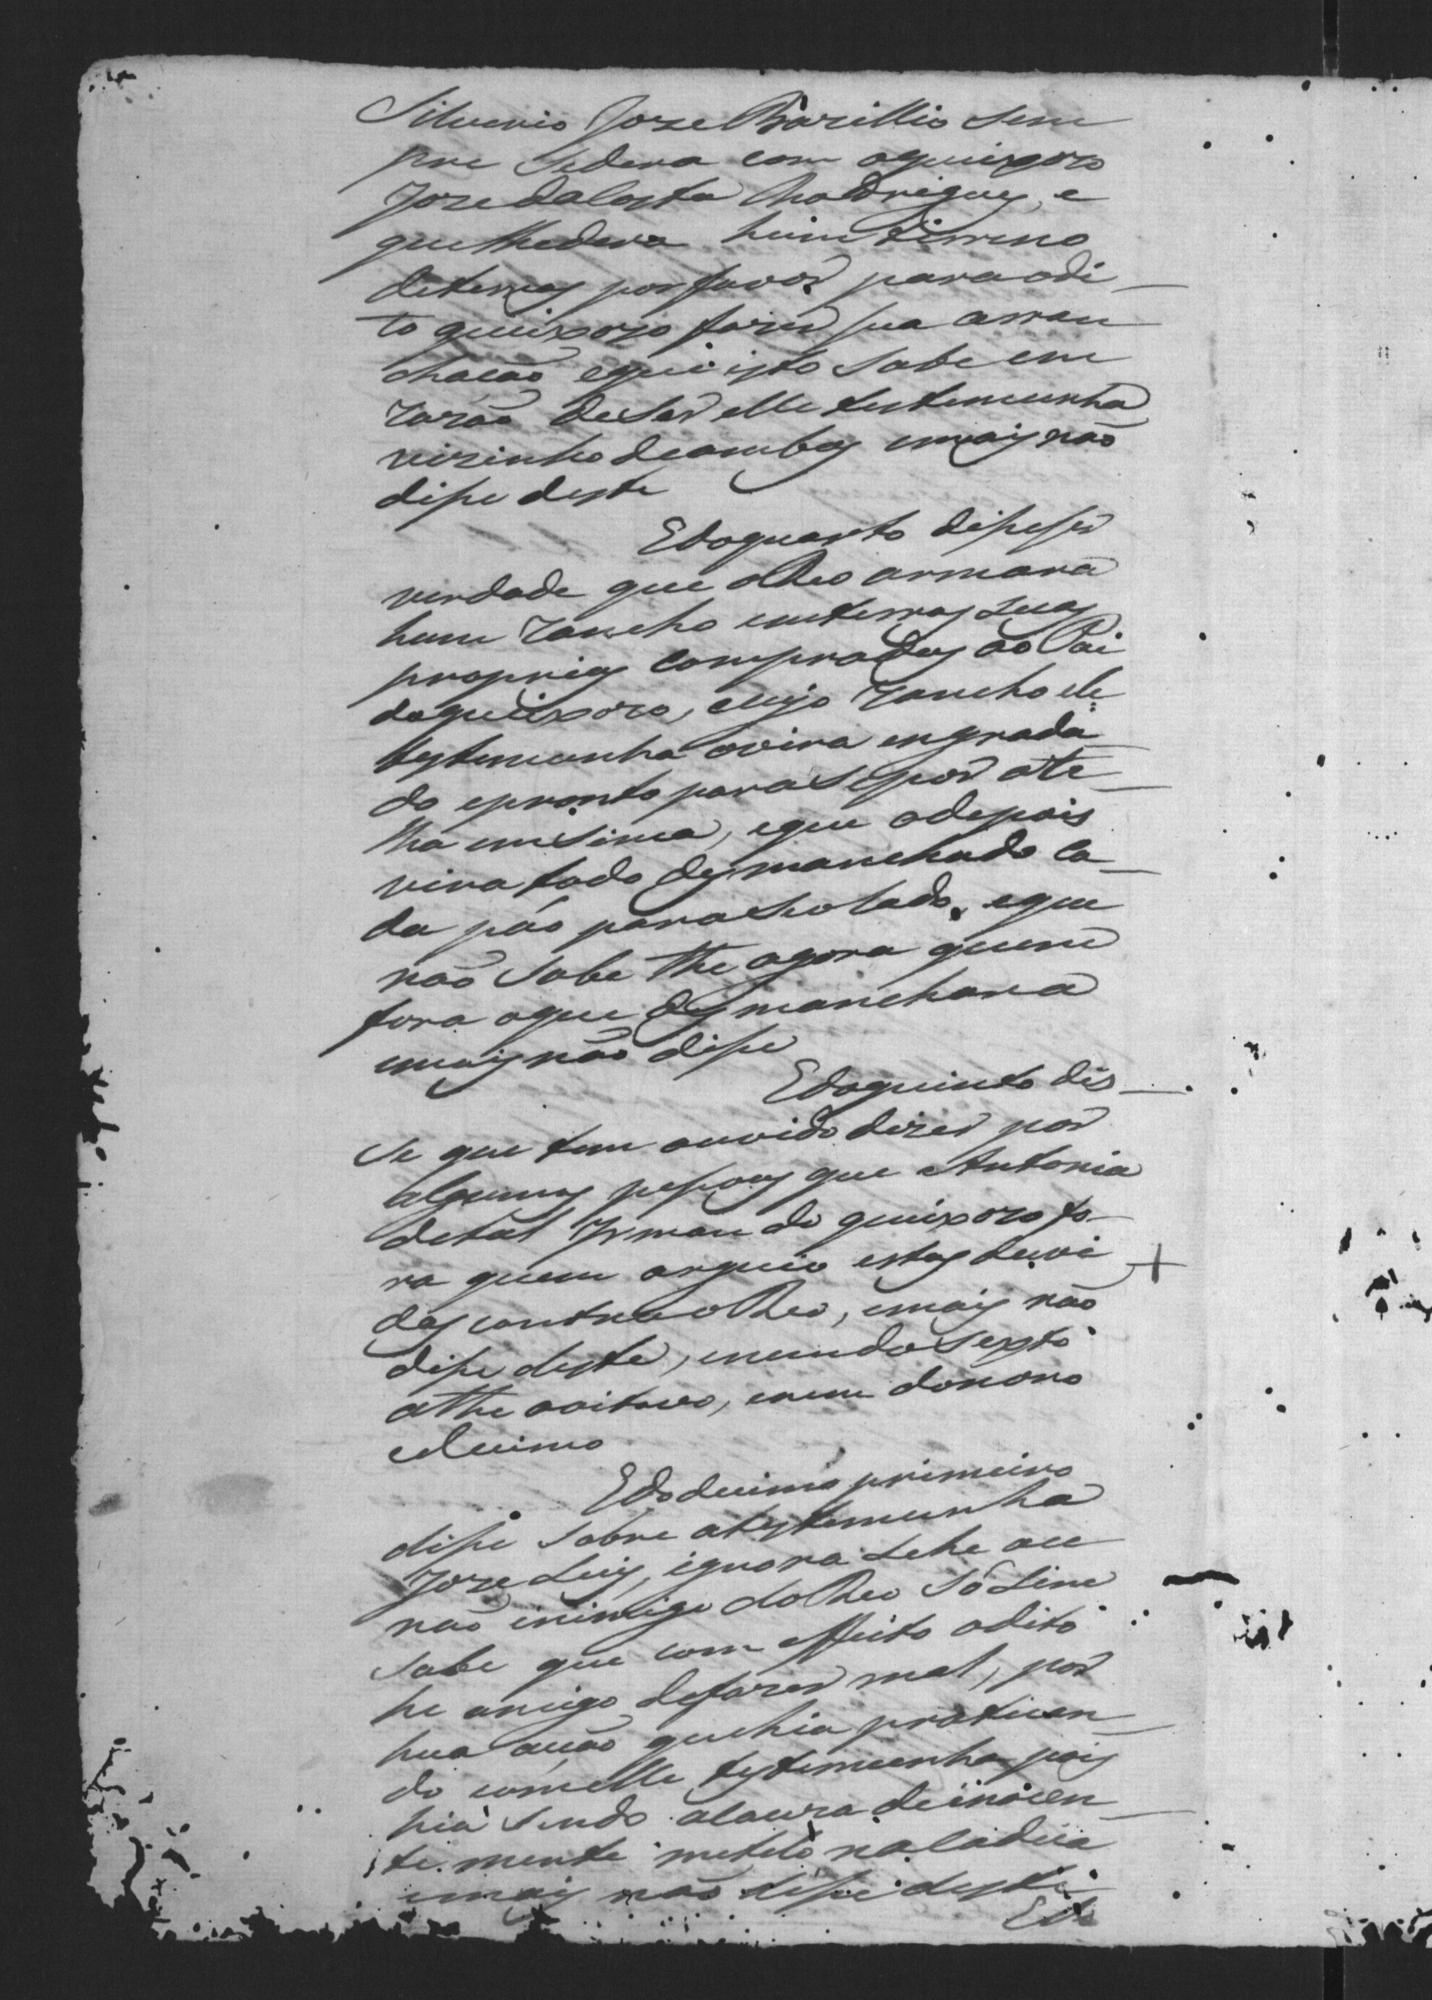 Silverio Jose Bazillio sem
pre sedera com oqueixozo
Jose daCosta Rhodrigues, e
que lhedera hum terreno
deterras por favor para odi-
to queixozo fazer sua arran
chacão eque isto sabe em
razão deser elle testemunha
vizinho deambos emais não
dise deste
Edoquarto dise ser
verdade que oReo armara
hum rancho emterras suas
proprias compradas ao Pai
doqueixozo, cujo rancho ele
testemunha ovira engrada
do epronto para sepor ate-
lha emsima, eque odepois
vira todo desmanchado ca-
da páo para seo lado, eque
não sabe the agora quem
fora oque desmanchara
emais não dise
Edoquinto dis-
se que tem ouvido dizer por
algumas pesoas que Antonia
detal Irman do queixozo fo-
ra quem arguio estas duvi
das contra oReo, emais não
dise deste, nem do sexto
athe ooitavo, nem do nono
edecimo
Edodecimo primeiro
dise sobre atestemunha
Jose Luis, ignora sehe ou
não inimigo do Reo só sim
sabe que com effeito odito
he amigo defazer mal, por
hua aução que hia pratican-
do comelle testemunha pois
hia sendo acauza deinocen-
temente metelo na Cadeia
emais não dise deste
Edo